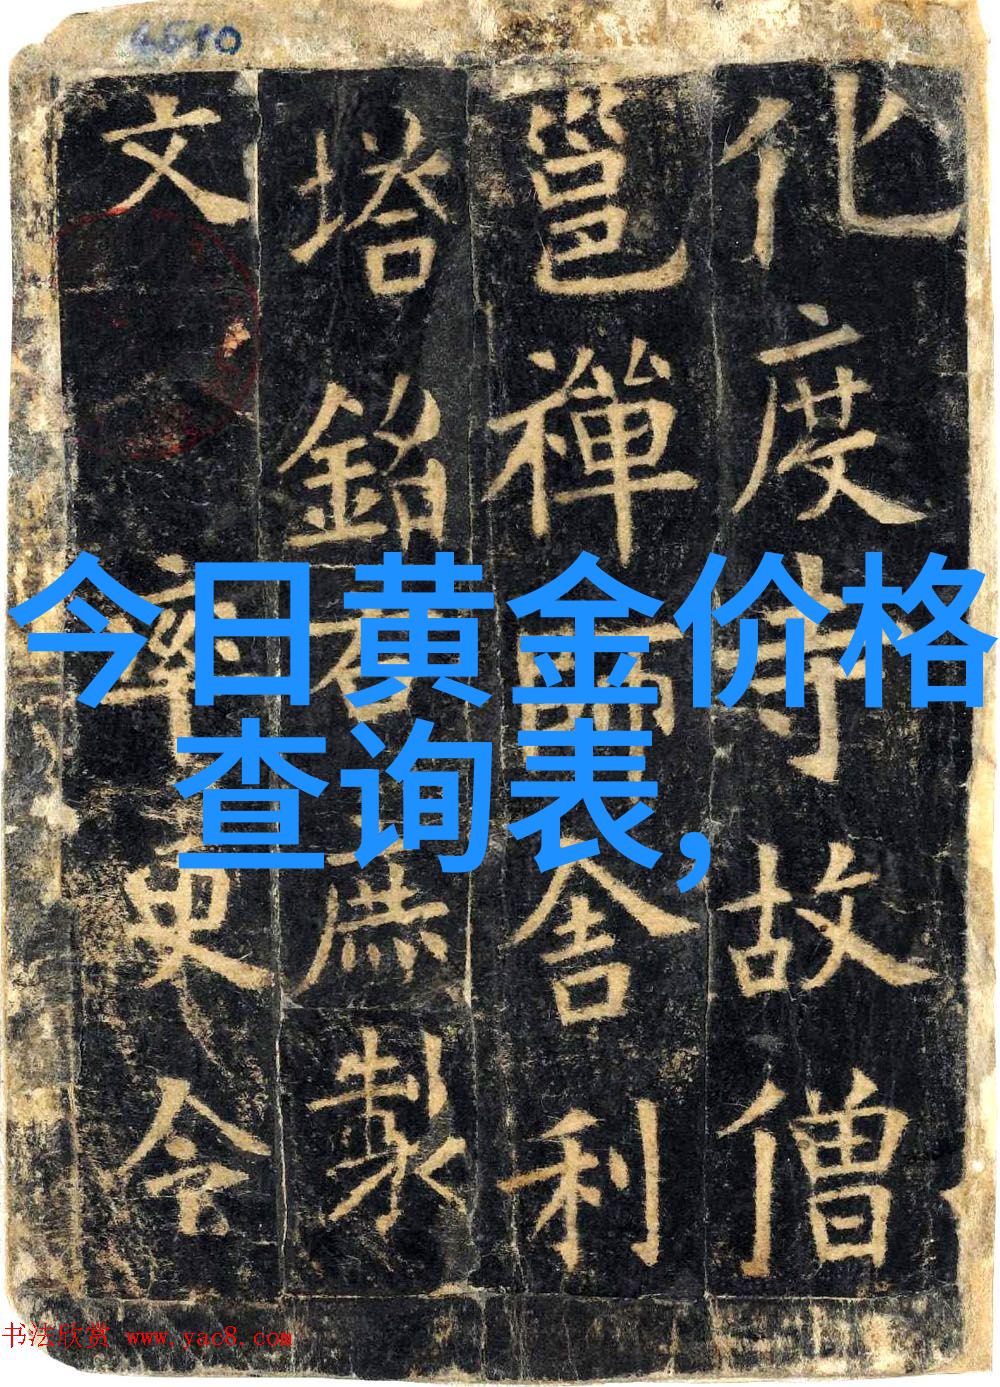 化度寺故僧
邕禪師舍利
塔銘右庶製
文
率更令
今日黄金价格
查询表,
书法欣赏 www.yac8.com